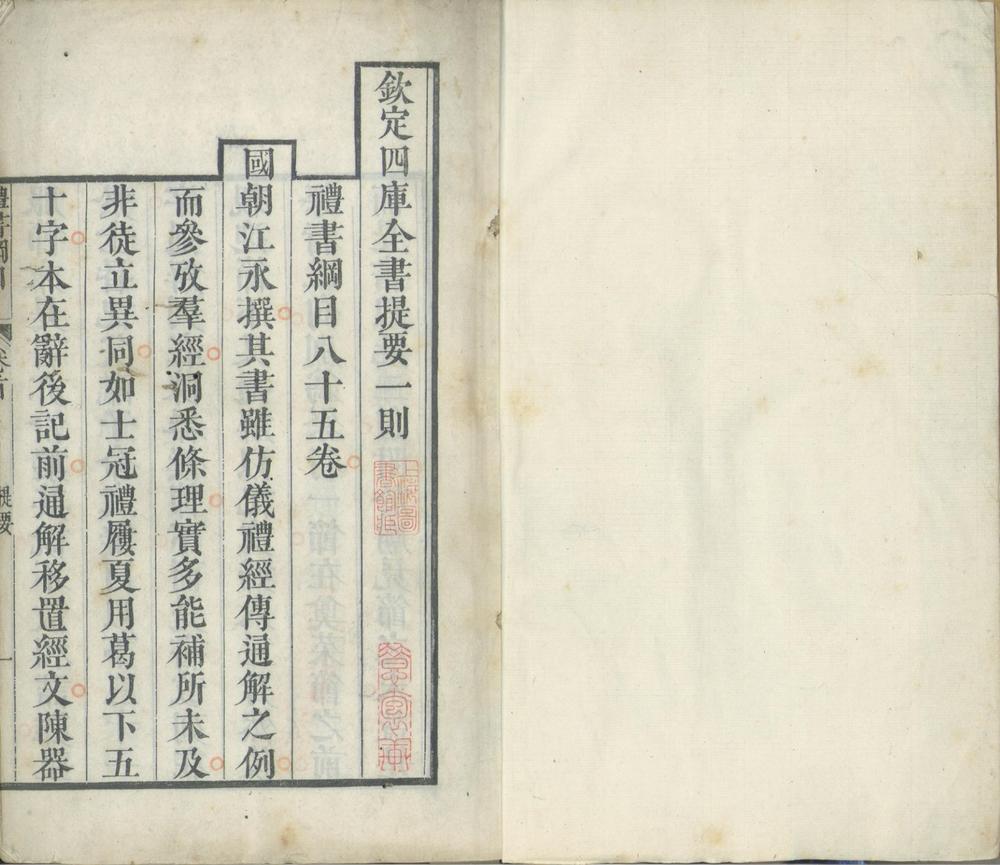 欽定四庫全書提要一則
禮書綱目八十五卷
國朝江永撰其書雖仿儀禮經傳通解之例
而參攷羣經洞悉條理實多能補所未及
非徒立異同如士冠禮屨夏用葛以下五
十字本在辭後記前通解移置經文陳器
禮書綱目
提要
一